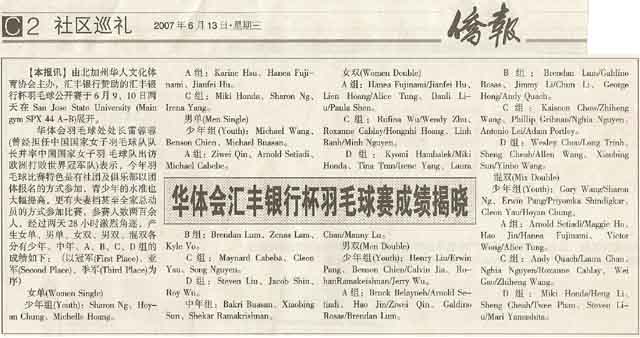 C2 社区巡礼 2007年6月13日·星期三 侨报
【本报讯】由北加州华人文化体
育协会主办，汇丰银行赞助的汇丰银
行杯羽毛球公开赛于6月9、10日两
天在 San Jose State University (Main
gym SPX 44 A-B)展开。
华体会羽毛球处处长雷蓉蓉
(曾经担任中国国家女子羽毛球队队
长并率中国国家女子羽毛球队出访
欧洲打败世界冠军队)表示，今年羽
毛球比赛特色是有社团及俱乐部以团
体报名的方式参加，青少年的水准也
大幅提高，更有夫妻档甚至全家总动
员的方式参加比赛，参赛人数两百余
人，经过两天28小时激烈角逐，产
生女单、男单、女双、男双、混双各
分有少年、中年、A、B、C、D组的
成绩如下：（以冠军(First Place)、亚
军(Second Place)、季军(Third Place)为
序)
女单(Women Single)
少年组(Youth): Sharon Ng, Hoy-
an Chung, Michelle Hoang。
A 组: Karine Hsu、Hanea Fuji-
nami、Jianfei Hu。
C 组: Miki Honda、Sharon Ng、
Irena Yang。
男单(Men Single)
少年组(Youth): Michael Wang、
Benson Chien、Michael Buenan。
A 组: Ziwei Qin、Arnold Setiadi、
Michael Cabebe。
华体会汇丰银行杯羽毛球赛成绩揭晓
B 组: Brendan Lum、Zenas Lam、
Kyle Vo。
C 组: Maynard Cabeba、Cleon
Yau、Song Nguyen。
D 组: Steven Liu、Jacob Shin、
Roy Wu。
中年组: Bakri Buasan、Xiaobing
Sun、Shekar Ramakrishnan。
女双(Women Double)
A 组: Hanea Fujinami/Jianfei Hu、
Lien Hoang/Alice Tung、Danli Li-
u/Paula Shen。
C 组: Rufina Wu/Wendy Zhu、
Roxanne Cablay/Hongnhi Hoang、Linh
Banh/Minh Nguyen。
D 组: Kyomi Hambalek/Miki
Honda、Tina Tran/Irene Yang、Laura
Chau/Manny Lu。
男双(Men Double)
少年组(Youth): Henry Liu/Erwin
Pang、Benson Chien/Calvin Jia、Ro-
hanRamakeishnan/Jerry Wu。
A 组: Brock Belayneh/Arnold Se-
tiadi、Hao Jin/Ziwei Qin、Galdino
Rosas/Brendan Lum。
B 组: Brendan Lum/Galdino
Rosas、Jimmy Li/Chun Li、George
Hong/Andy Quach。
C 组: Kaisuon Chow/Zhiheng
Wang、Phillip Gribnan/Nghia Nguyen、
Antonio Lei/Adam Portley。
D 组: Wesley Chou/Long Trinh、
Sheng Cheah/Allen Wang、Xiaobing
Sun/Yinbo Wang。
混双(Mix Double)
少年组(Youth): Gary Wang/Sharon
Ng、Erwin Pang/Priyamka Shundigkar、
Cleon Yau/Hoyan Chung。
A 组: Arnold Setiadi/Maggie Ho、
Hao Jin/Hanea Fujinami、Victor
Wong/Alice Tung。
C 组: Andy Quach/Laura Chau、
Nghia Nguyen/Roxanne Cablay、Wei
Guo/Zhiheng Wang。
D 组: Miki Honda/Heng Li、
Sheng Cheah/Twee Pham、Steven Li-
u/Mari Yamashita。